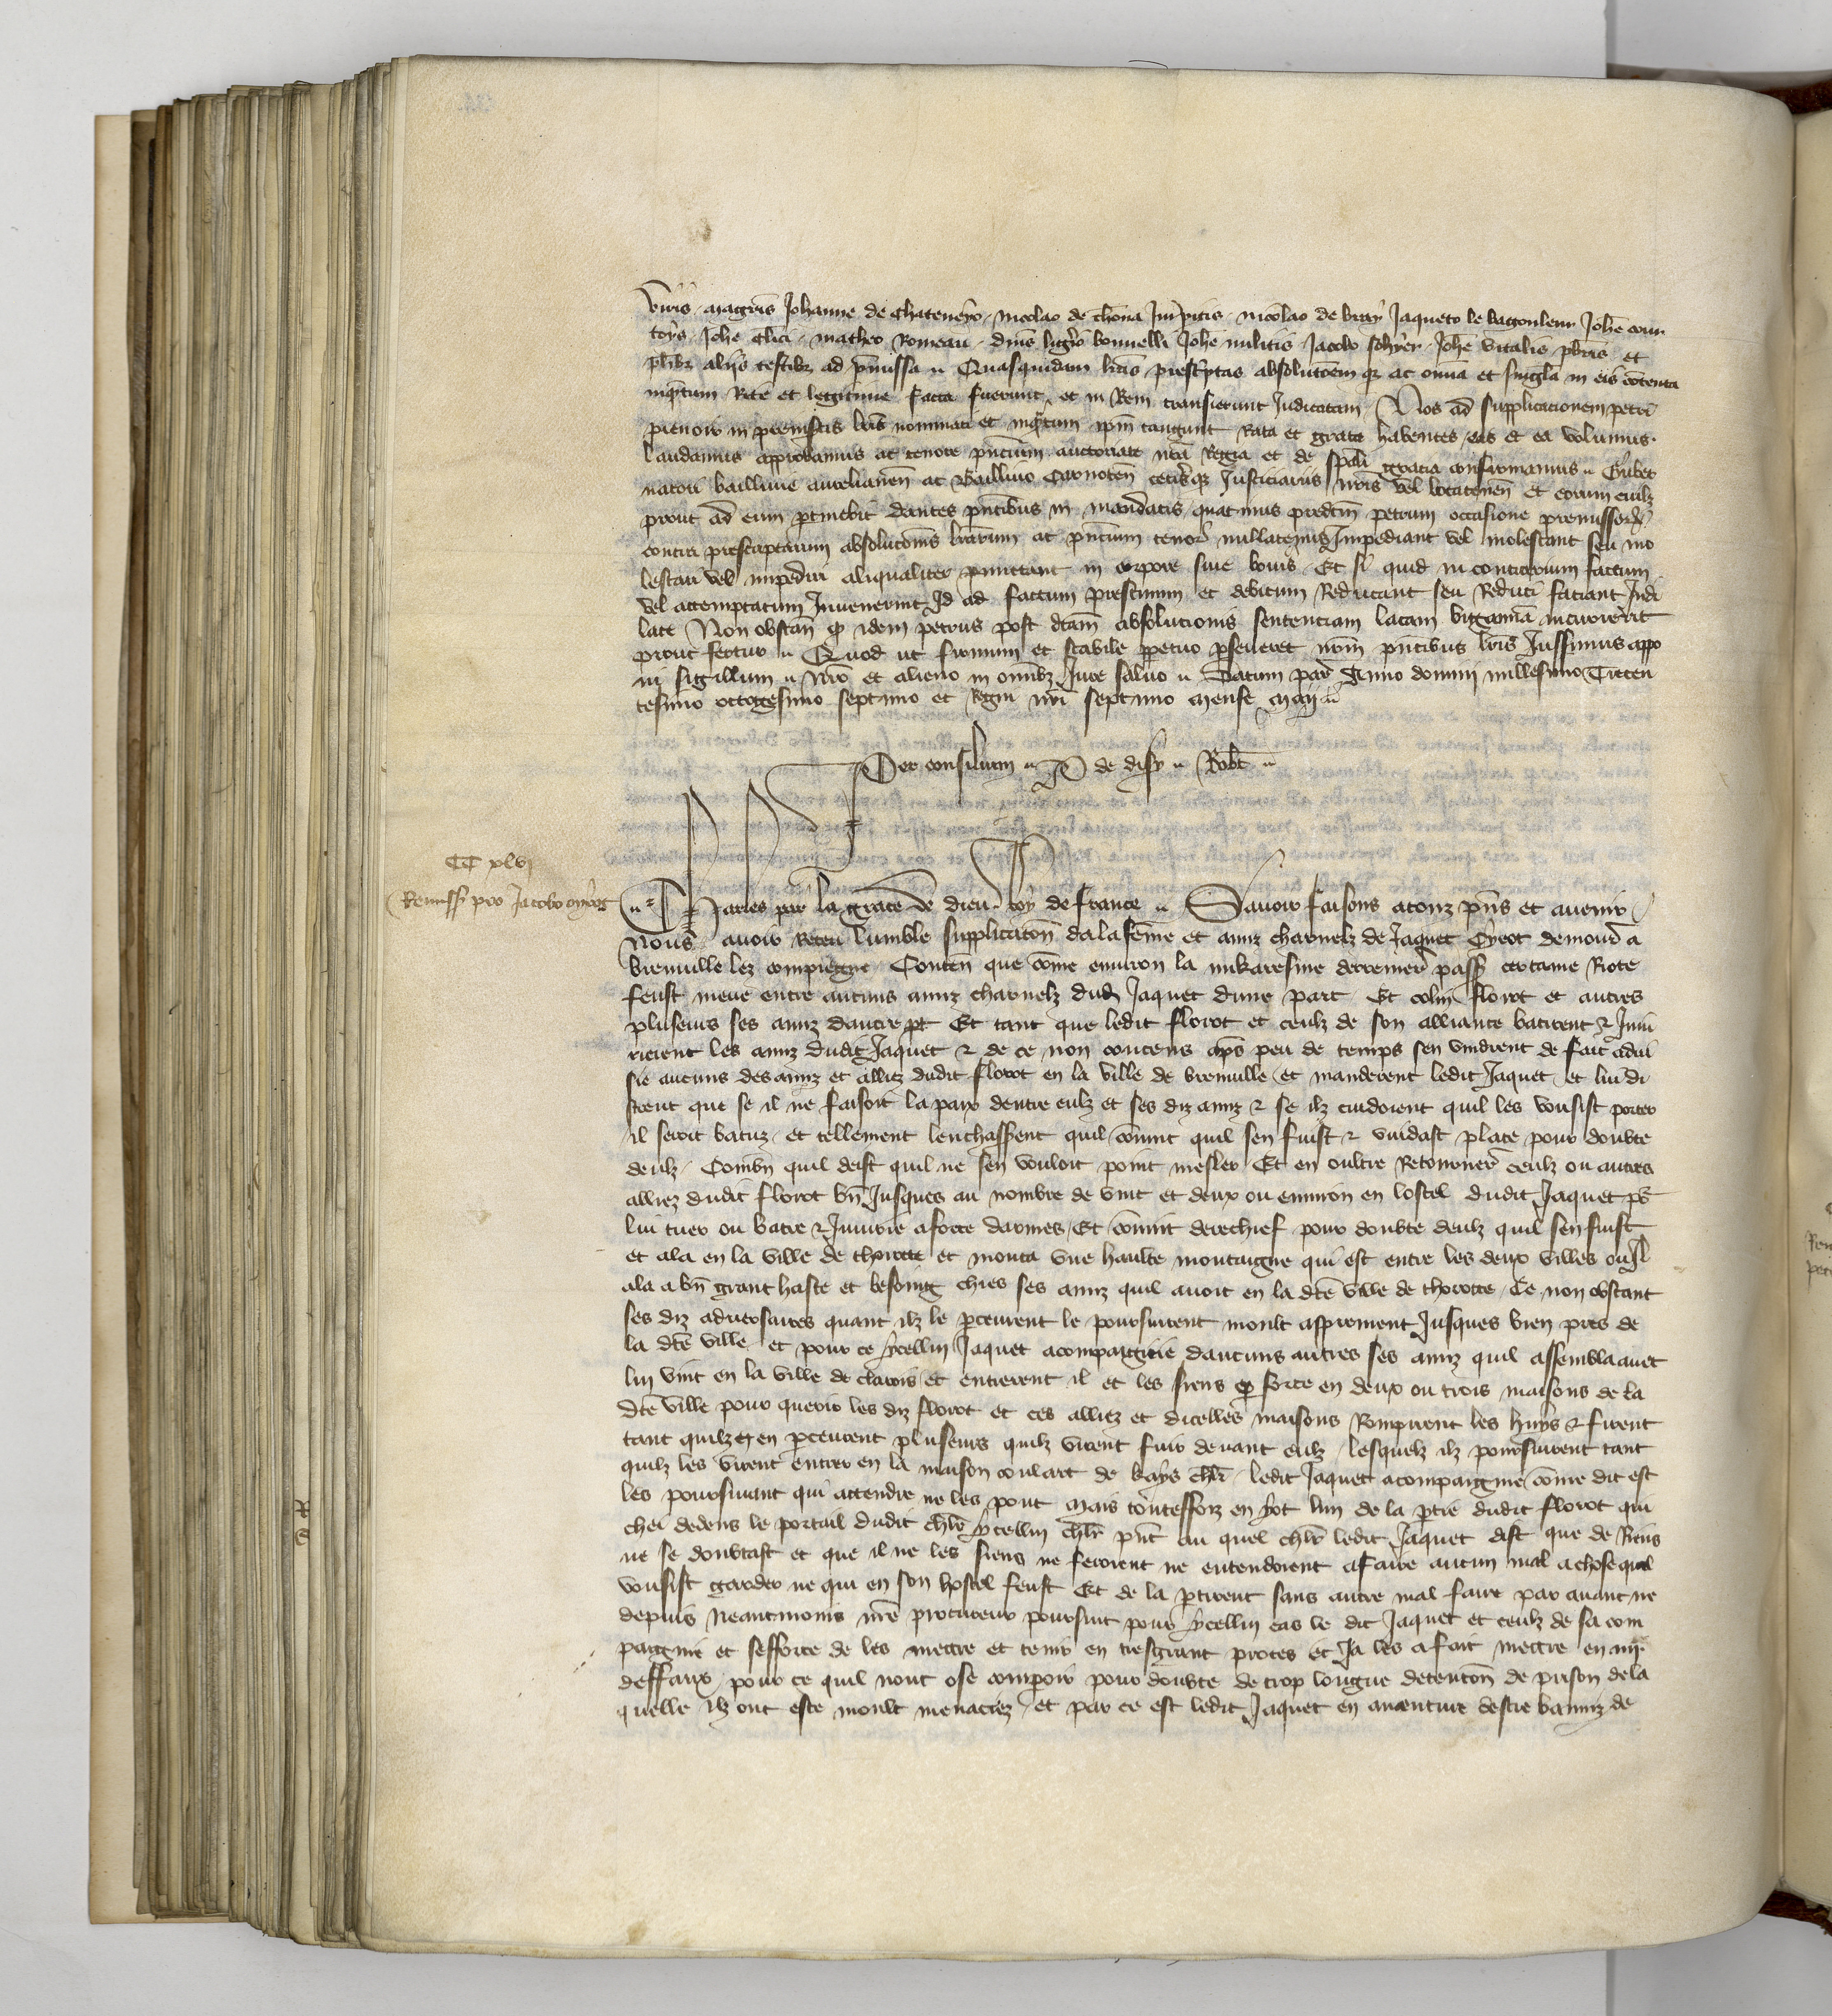 viris magistris Johanne de Chateneyo, Nicolao de
Nicolao de Bray Jaqueto le Johe
toys Johe Clici Matheo Romeau Johe militis Jacobo Johe Vitalis pbris et
plibz aliis testibz ad pmissa Quasquidam lras prescriptas absolutoemqz ac omia et singla in eis cotenta
inqtum Rite et legitime facta fuerunt et in Rem transierunt Judicatam Nos ad supplicacionem petri
in premissis lris nominati et inqtum ipm tangunt Rata et grata habentes eas et ea volumus
laudamus approbamus ac tenore pncium auctoritate nra Regia et de spali gratia confirmamus Guber
natori baillivie aurelianen ac Baillivo Carnoten cetisqz Justiciariis nris vel locaten et eorum cuilz
prout ad eum ptinebit dantes pntibus in mandatis quatinus predcm petrum occasione premissor
contra prescriptarum absolutonis lrarum ac pncium tenor nullatenus Impediant vel molestant seu mo
lestari vel impediri aliqualiter pmittant in corpore sive bonis Et si quid in contrarium factum
vel attemptatum Invenerint Id ad statum pristinum et debitum Reducant seu Reduci faciant Indi
late Non obstan q idem petrus post dtam absolucionis sentenciam latam bigamia incurrerit
prout fertur Quod ut firmum et stabile ppetuo pseveret nrm pntibus lris Jussimus appo
ni sigillum nro et alieno in omibz Jure salvo Datum par Anno domini millesimo Trecen
tesimo octogesimo septimo et Regni nri septimo mense Maij
Per consilium P de disy Robt
CC xlvj
Remissio pro Jacobo oyeot
Charles par la grace de dieu Roy de france Savoir faisons a touz pns et avenir
Nous avoir Receu lumble supplicaton de la feme et amiz charnelz de Jaquet Oyeot demour a
bienville lez compiegne Conten que come environ la mikaresme derrenier passe certaine Riote
feust meue entre aucuns amiz charnelz dud Jaquet dune part Et colin florot et autres
pluseurs ses amiz dautre pt Et tant que ledit florot et ceulz de son alliance batirent & Iniu
rierent les amiz dudit Jaquet & de ce non contens aps peu de temps sen vindrent de fait advi
sie aucuns des amiz et alliez dudit florot en la ville de bienville et manderent ledit Jaquet et lui di
strent que se il ne faisoit la paix dentre eulz et ses diz amiz & se ilz cuidoient quil les vousist porter
il seroit batuz et tellement lenchasserent quil covint quil sen fuist & vuidast place pour doubte
deulz Combn quil deist quil ne sen vouloit point mesler Et en oultre Retourner ceulz ou autres
alliez dudit florot bn Jusques au nombre de vint et deux ou environ en lostel dudit Jaquet ps
lui tuer ou batre & Iniurie a force darmes Et covint derechief pour doubte deulz quil sen fuist
et ala en la ville de thorotte et monta une haulte montaigne qui est entre les deux villes ou Il
ala a bn grant haste et besoing chies ses amiz quil avoit en la dte ville de thorotte Ce non obstant
ses diz adversaires quant ilz le pceurent le poursuirent moult asprement Jusques bien pres de
la dte ville et pour ce ycellui Jaquet acompaignie daucuns autres ses amiz quil assembla avec
lui vint en la ville de clarois et entrerent il et les siens p force en deux ou trois maisons de la
dte ville pour querir les diz florot et ces alliez et dicelles maisons Rompirent les huys & firent
tant quilz en pceurent pluseurs quilz virent fuir devant eulz lesquelz ilz poursuirent tant
quilz les virent entrer en la maison coulart de kays chlr ledit Jaquet acompaignie come dit est
les poursuivant qui attendre ne les pout mais toutesfoiz en yot lun de la ptie dudit florot qui
chei dedens le portail dudit chlr ycellui chlr pnt au quel chlr ledit Jaquet dist que de Riens
ne se doubtast et que il ne les siens ne feroient ne entendoient a faire aucun mal a chose quil
vousist garder ne qui en son hostel feust Et de la ptirent sans autre mal faire par avant ne
depuis Neantmoins nre procureur poursuit pour ycellui cas le dit Jaquet et ceulz de sa com
paignie et sefforce de les mettre et tenir en tresgrant proces et Ja les a fait mettre en iiij
deffaux pour ce quil nont ose comparoir pour doubte de trop longue detenton de prison de la
quelle ilz ont este moult menaciez et par ce est ledit Jaquet en aventure destre banniz de